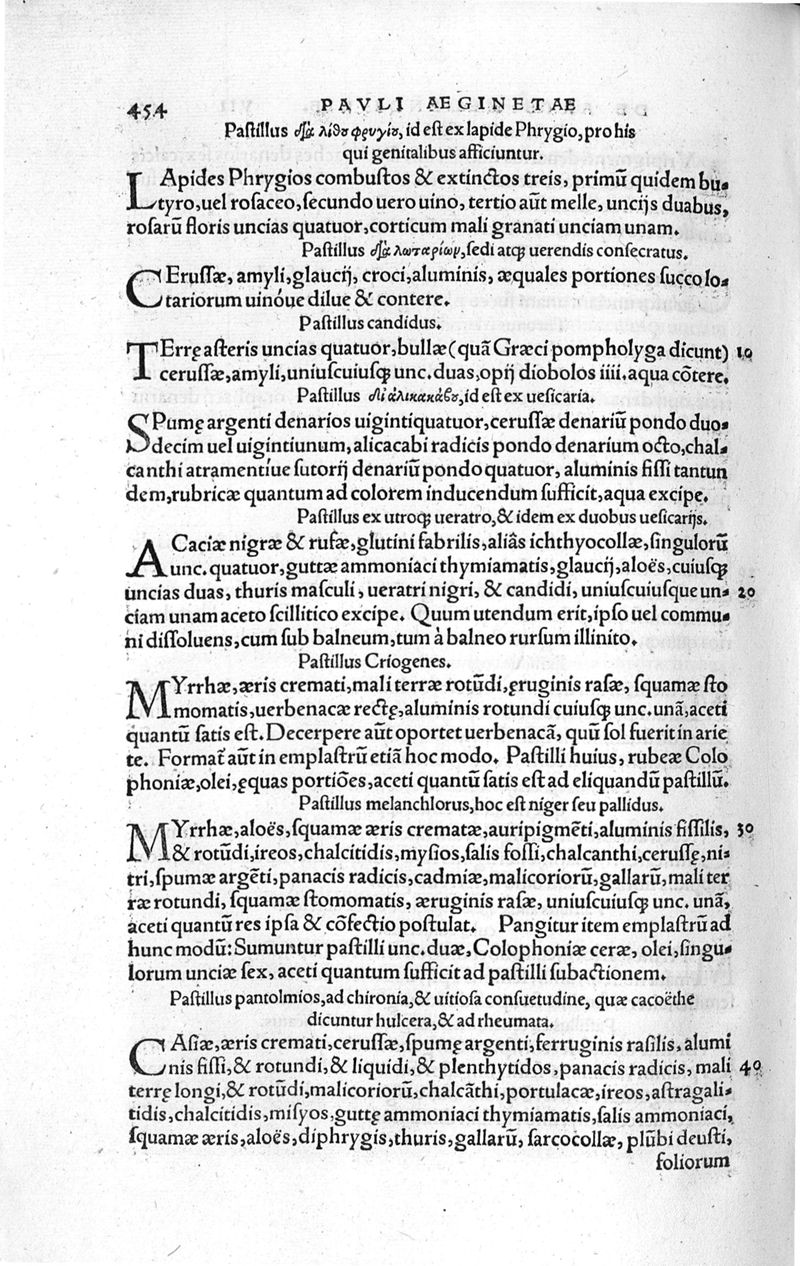 454 PAVLI AEGINETAE
Pastillus διὰ λίθου φρυγίου, id est ex lapide Phrygio, pro his
qui genitalibus afficiuntur.
LApides Phrygios combustos & extinctos treis, primũ quidem bu-
tyro, uel rosaceo, secundo uero uino, tertio aũt melle, uncijs duabus,
rosarũ floris uncias quatuor, corticum mali granati unciam unam.
Pastillus διὰ λωταρίων, sedi atqꝫ uerendis consecratus.
CErussæ, amyli, glaucij, croci, aluminis, æquales portiones succo lo-
tariorum uinóue dilue & contere.
Pastillus candidus.
TErrę asteris uncias quatuor, bullæ (quã Græci pompholyga dicunt) 10
cerussæ, amyli, uniuscuiusqꝫ unc. duas, opij diobolos iiii. aqua cõtere.
Pastillus δι᾽ ἁλικακάβου, id est ex uesicaria.
SPumę argenti denarios uigintiquatuor, cerussæ denariũ pondo duo-
decim uel uigintiunum, alicacabi radicis pondo denarium octo, chal-
canthi atramentíue sutorij denariũ pondo quatuor, aluminis fissi tantun
dem, rubricæ quantum ad colorem inducendum sufficit, aqua excipe.
Pastillus ex utroqꝫ ueratro, & idem ex duobus uesicarijs.
ACaciæ nigræ & rufæ, glutini fabrilis, aliâs ichthyocollæ, singulorũ
unc. quatuor, guttæ ammoniaci thymiamatis, glaucij, aloës, cuiusqꝫ
uncias duas, thuris masculi, ueratri nigri, & candidi, uniuscuiusque un- 20
ciam unam aceto scillitico excipe. Quum utendum erit, ipso uel commu-
ni dissoluens, cum sub balneum, tum à balneo rursum illinito.
Pastillus Criogenes.
MYrrhæ, æris cremati, mali terræ rotũdi, ęruginis rasæ, squamæ sto
momatis, uerbenacæ rectę, aluminis rotundi cuiusqꝫ unc. unã, aceti
quantũ satis est. Decerpere aũt oportet uerbenacã, quũ sol fuerit in arie
te. Format̃ aũt in emplastrũ etiã hoc modo. Pastilli huius, rubeæ Colo
phoniæ, olei, ęquas portiões, aceti quantũ satis est ad eliquandũ pastillũ.
Pastillus melanchlorus, hoc est niger seu pallidus.
MYrrhæ, aloës, squamæ æris crematæ, auripigmẽti, aluminis fissilis, 30
& rotũdi, ireos, chalcitidis, mysios, salis fossi, chalcanthi, cerussę, ni-
tri, spumæ argẽti, panacis radicis, cadmiæ, malicoriorũ, gallarũ, mali ter
ræ rotundi, squamæ stomomatis, æruginis rasæ, uniuscuiusqꝫ unc. unã,
aceti quantũ res ipsa & cõfectio postulat. Pangitur item emplastrũ ad
hunc modũ: Sumuntur pastilli unc. duæ, Colophoniæ ceræ, olei, singu-
lorum unciæ sex, aceti quantum sufficit ad pastilli subactionem.
Pastillus pantolmios, ad chironia, & uitiosa consuetudine, quæ cacoëthe
dicuntur hulcera, & ad rheumata.
CAsiæ, æris cremati, cerussæ, spumę argenti, ferruginis rasilis, alumi
nis fissi, & rotundi, & liquidi, & plenthytidos, panacis radicis, mali 40
terrę longi, & rotũdi, malicoriorũ, chalcãthi, portulacæ, ireos, astragali-
tidis, chalcitidis, misyos, guttę ammoniaci thymiamatis, salis ammoniaci,
squamæ æris, aloës, diphrygis, thuris, gallarũ, sarcocollæ, plũbi deusti,
foliorum